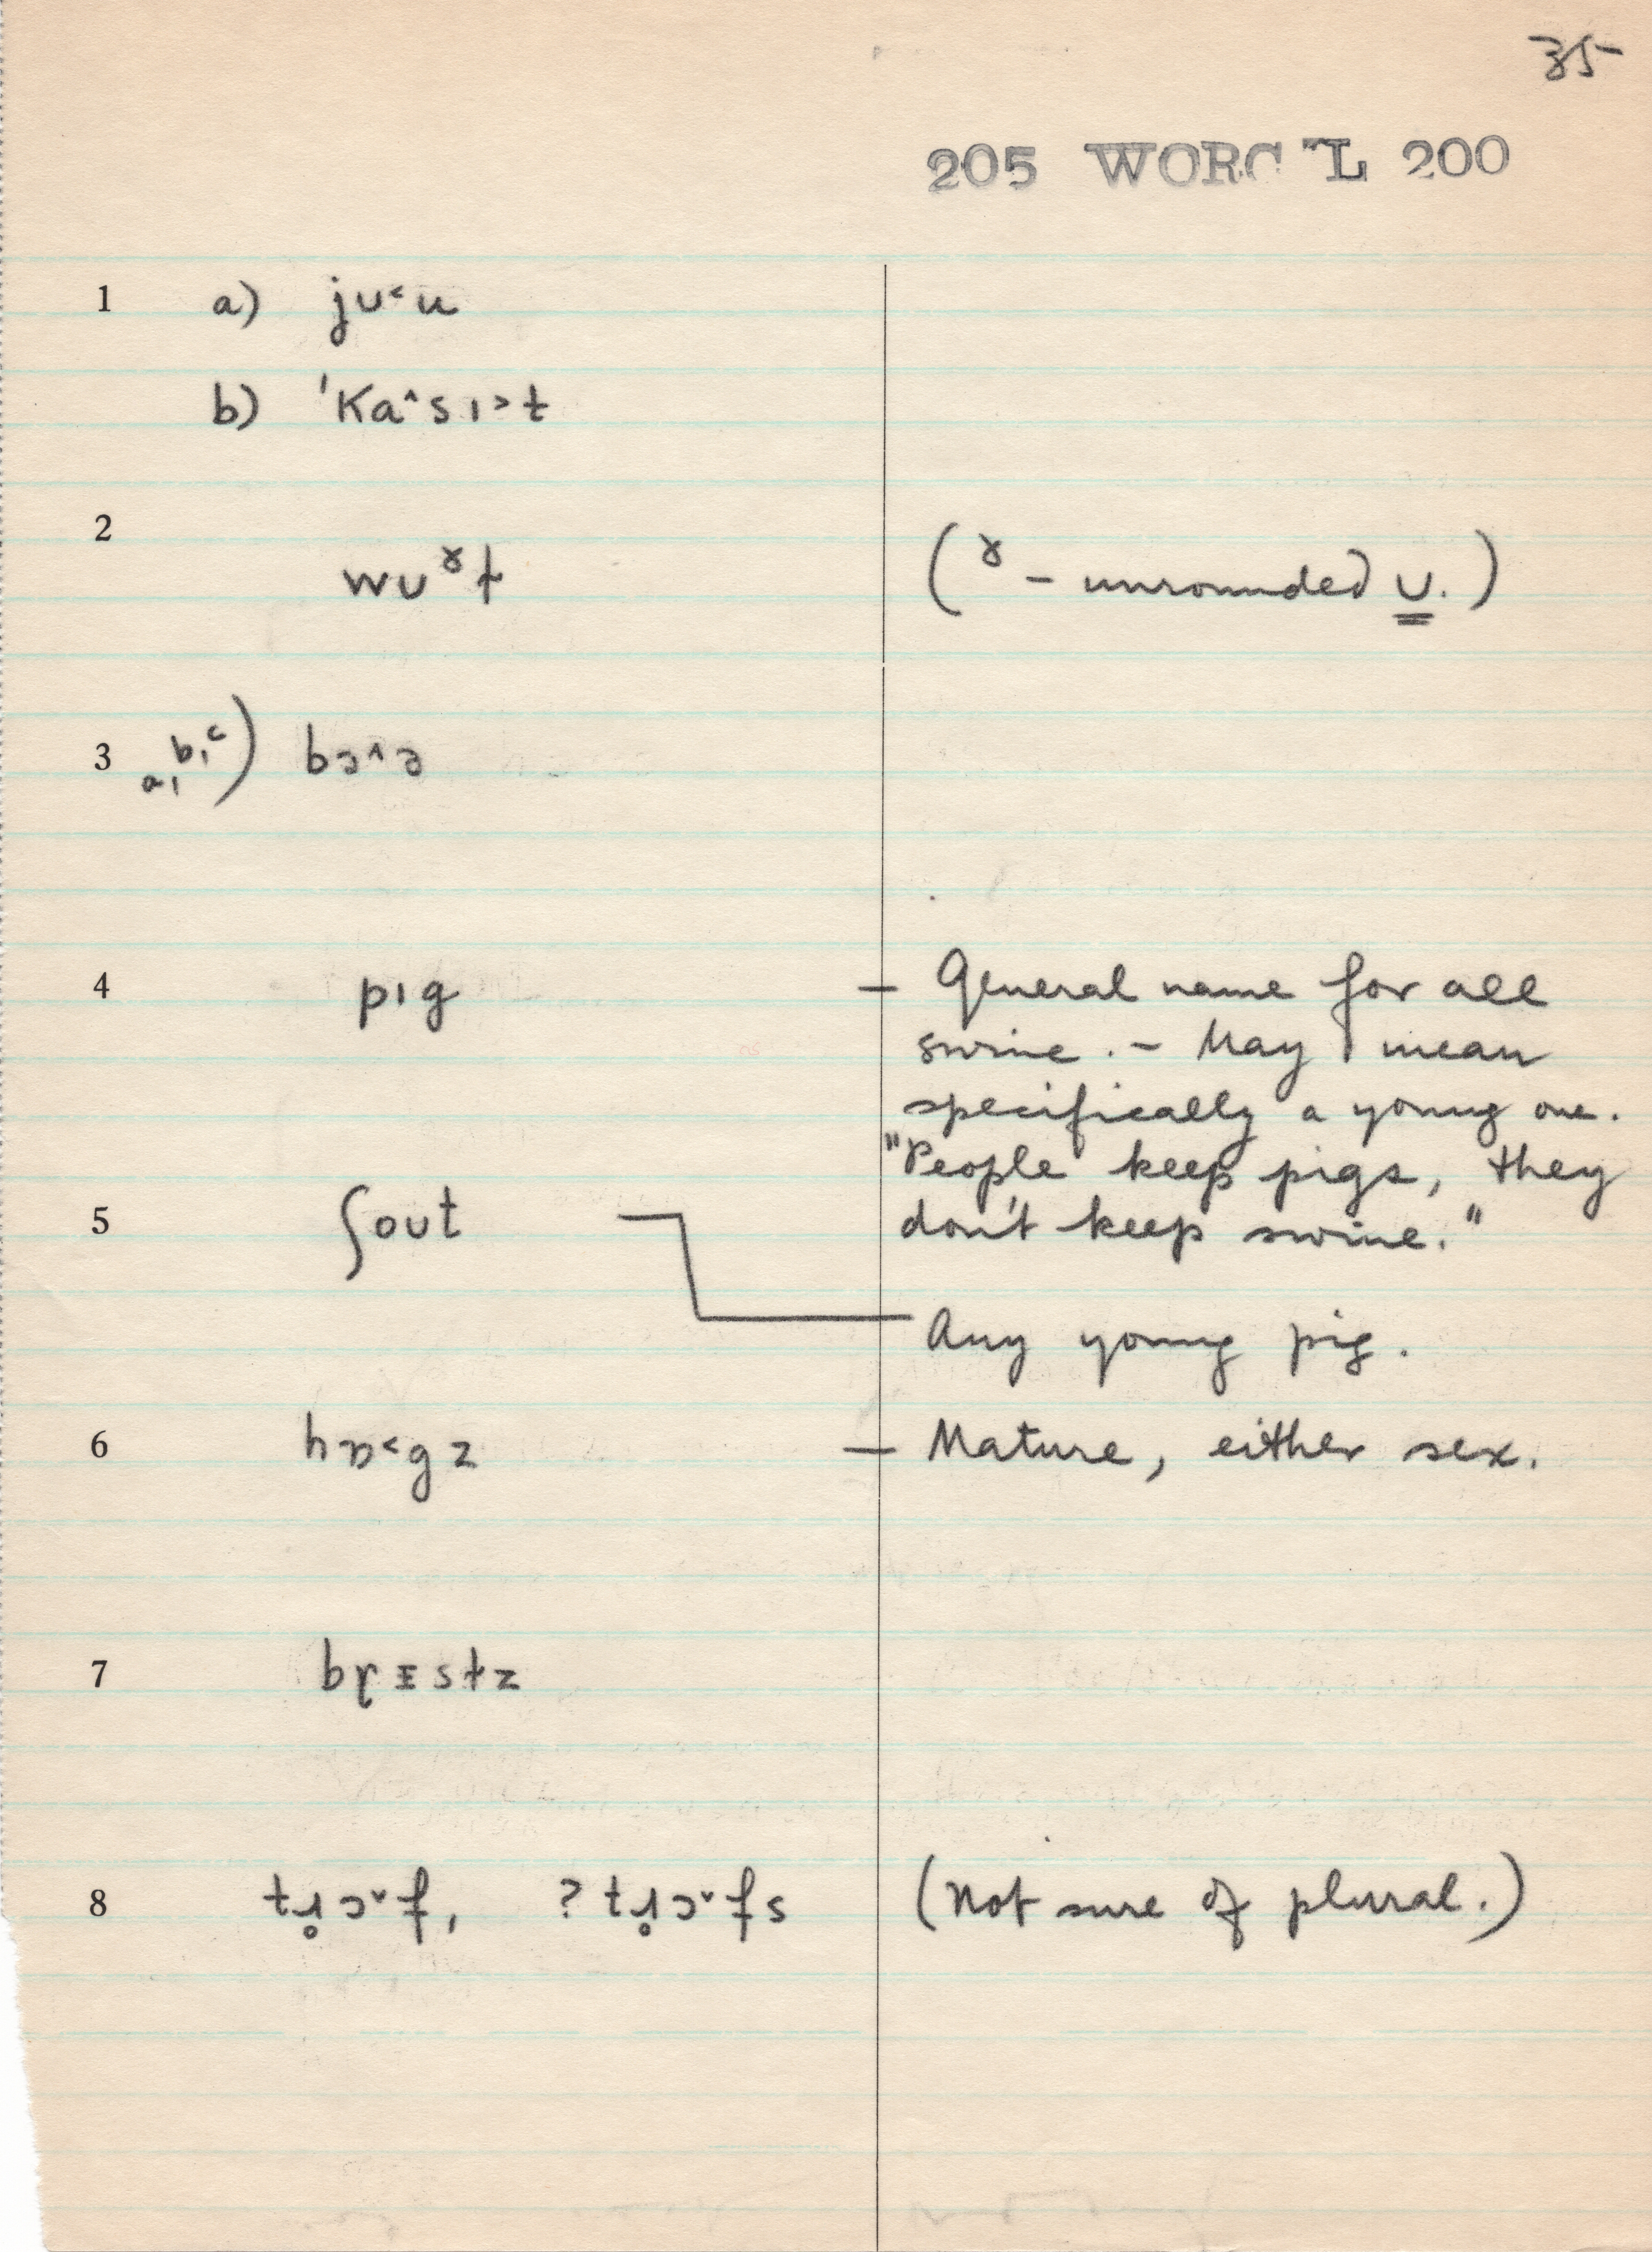 35
205 WORC L 200
1 a) ju˂u
b) ˈKa˄sı˃t
2 wuˠɫ (ˠ – unrounded u.)
3 a, b, c) bɘ˄ɘ
4 pıg – General name for all
swine. – May mean
specifically a young one.
"People keep pigs, they
don't keep swine."
5 ʃout
Any young pig.
6 hɒ˂gz – Mature, either sex.
7 bɽɪstz
8 tɹ̥ɔ˅f, ? tɹ̥ɔ˅fs (Not sure of plural.)